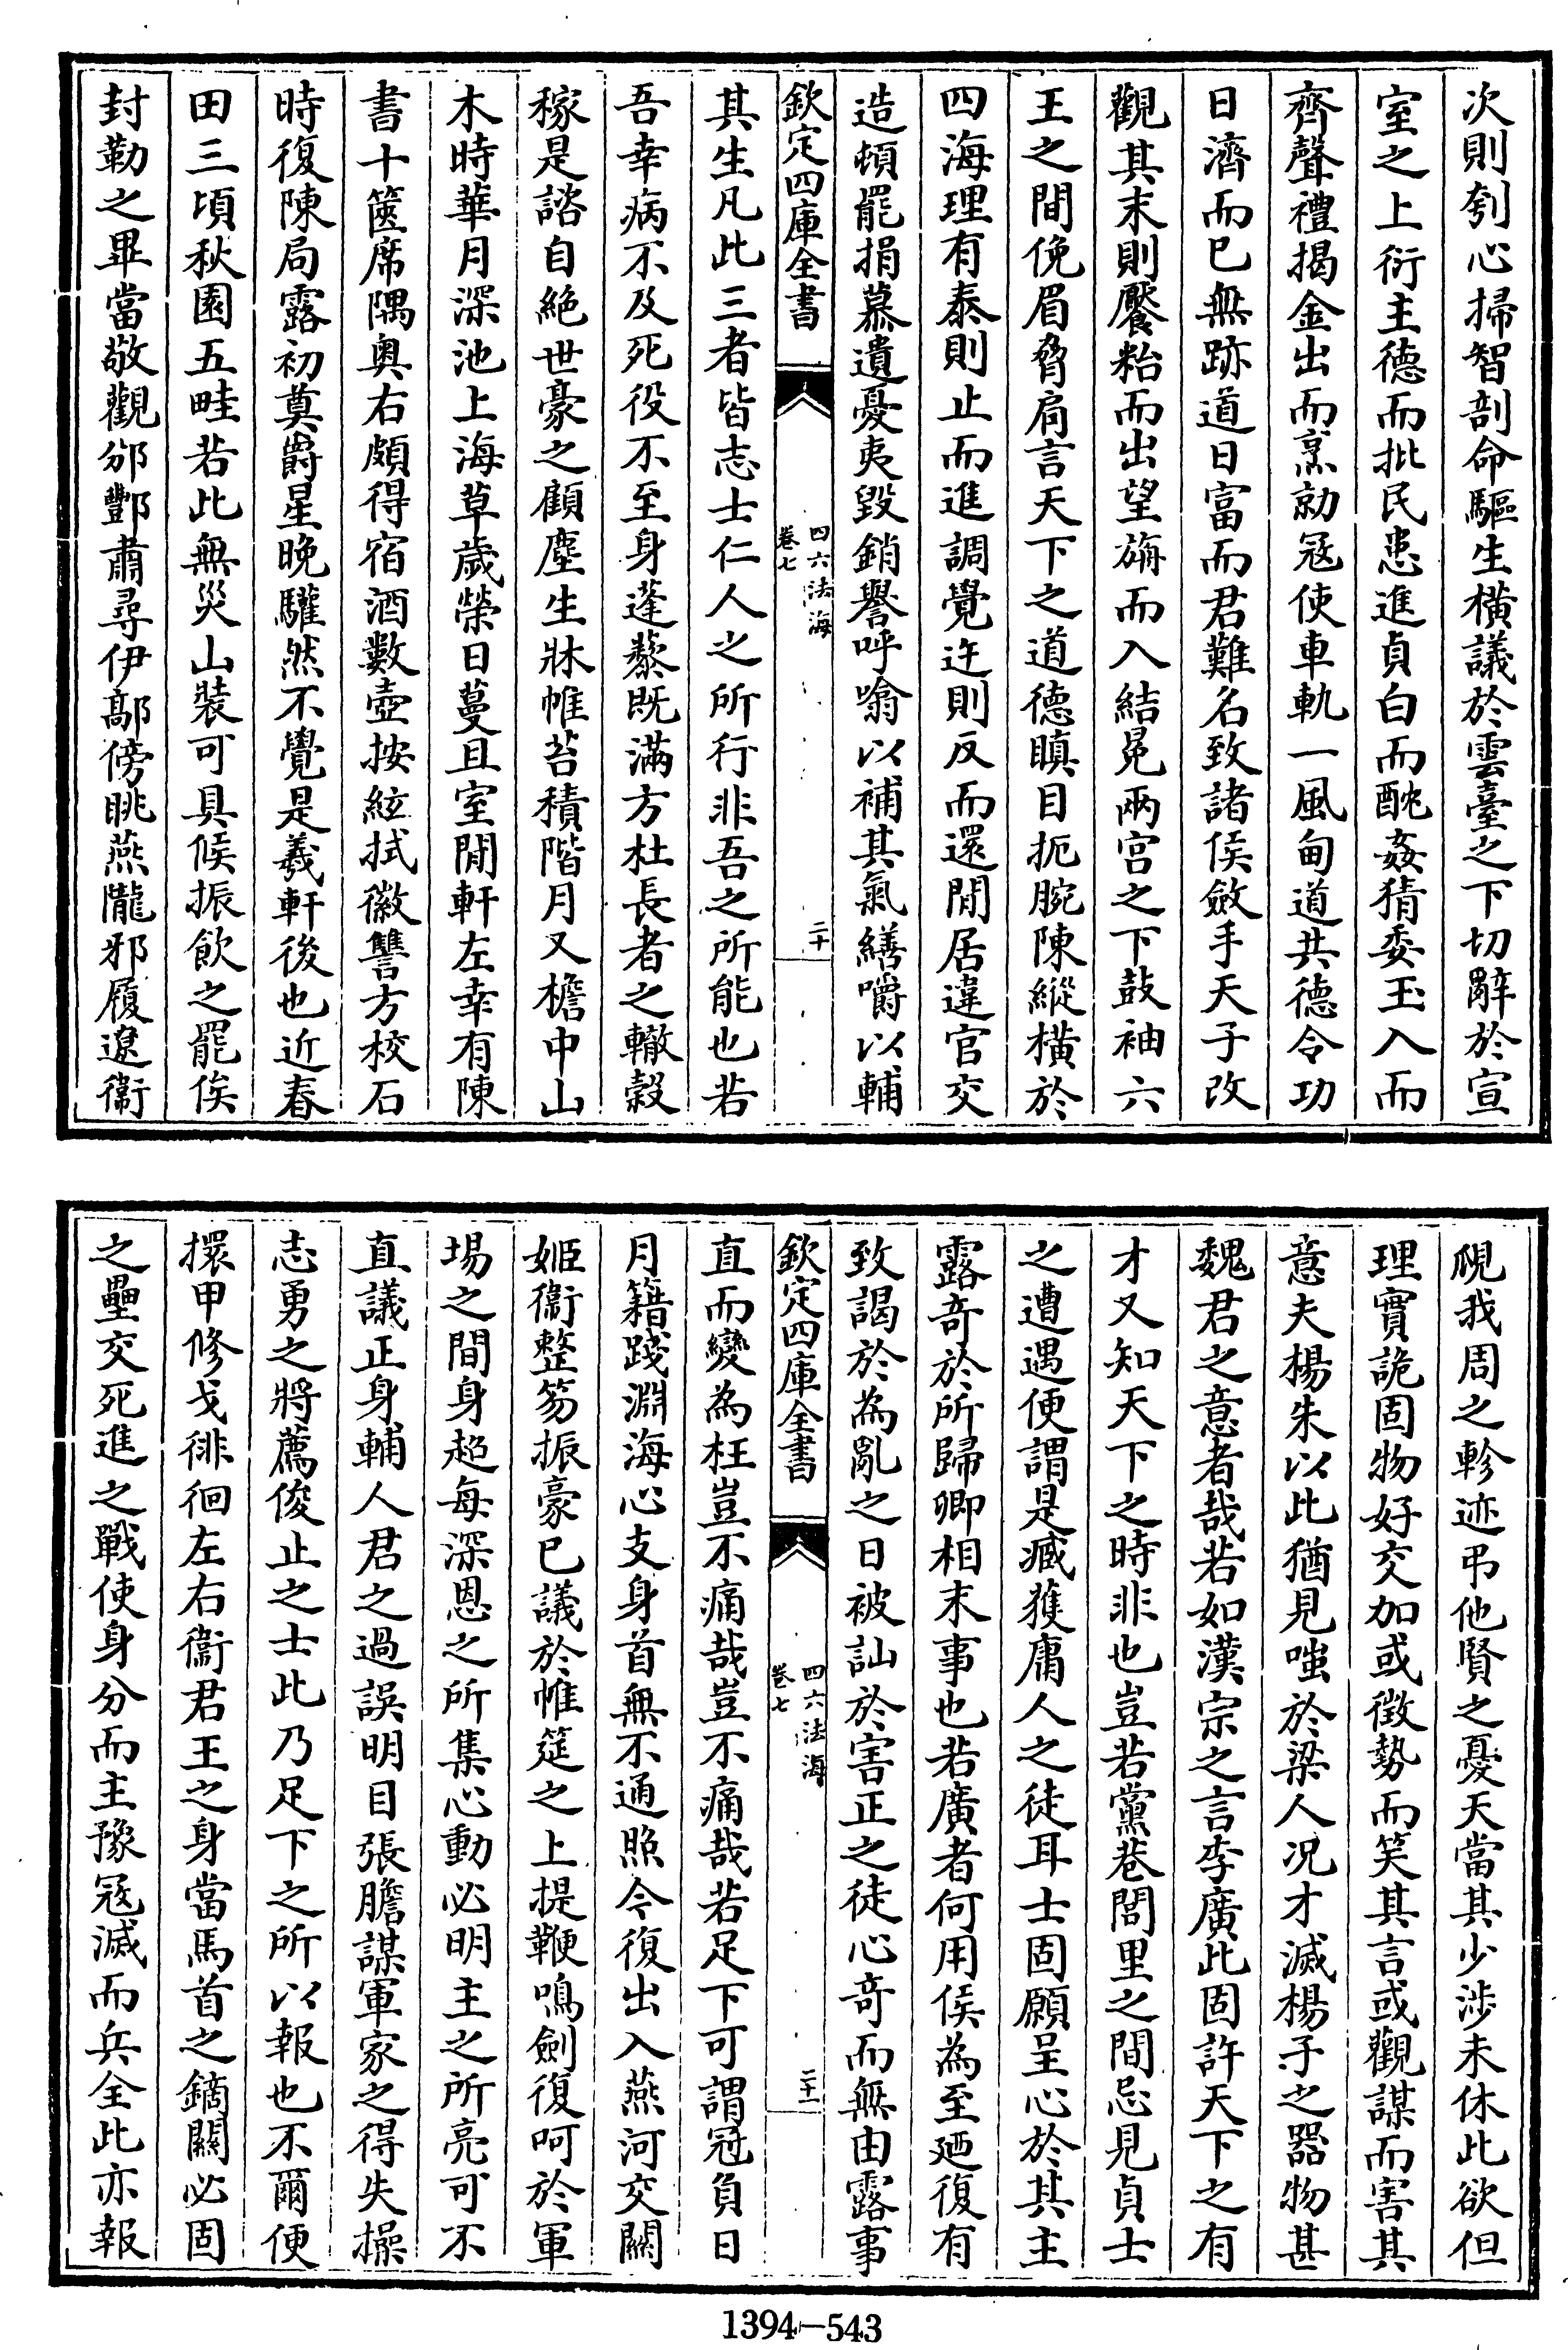 次則刳心掃智剖命驅生橫議於雲臺之下切辭於宣
室之上衍主德而批民患進貞白而酖姦猜委玉入而
齊聲禮揭金出而烹勍冦使車軌一風甸道共德令功
日濟而已無跡道日富而君難名致諸侯斂手天子改
觀其末則饜粭而出望旃而入結冕兩宮之下鼓袖六
王之間俛眉脅肩言天下之道德瞋目扼腕陳縱橫於
四海理有泰則止而進調覺迕則反而還閒居違官交
造頓罷捐慕遺憂夷毀銷譽呼噏以補其氣繕嚼以輔
欽定四庫全書
四六法海
卷七
二十
其生凡此三者皆志士仁人之所行非吾之所能也若
吾幸病不及死役不至身蓬藜既滿方杜長者之轍穀
稼是諮自絶世豪之顧塵生牀帷苔積階月又檐中山
木時華月深池上海草歲榮日蔓且室閒軒左幸有陳
書十篋席隅奥右頗得宿酒數壺按絃拭徽讐方校石
時復陳局露初奠爵星晚驩然不覺是羲軒後也近春
田三頃秋園五畦若此無災山裝可具候振飲之罷俟
封勒之畢當敬觀邠酆肅尋伊鄗傍眺燕隴邪履遼衞
覛我周之軫迹弔他賢之憂天當其少涉未休此欲但
理實詭固物好交加或徵勢而笑其言或觀謀而害其
意夫楊朱以此猶見嗤於梁人况才減楊子之器物甚
魏君之意者哉若如漢宗之言李廣此固許天下之有
才又知天下之時非也豈若黨巷閭里之間忌見貞士
之遭遇便謂是臧獲庸人之徒耳士固願呈心於其主
露奇於所歸卿相末事也若廣者何用侯為至廼復有
致謁於為亂之日被訕於害正之徒心奇而無由露事
欽定四庫全書
四六法海
卷七
二十一
直而變為枉豈不痛哉豈不痛哉若足下可謂冠負日
月籍踐淵海心支身首無不通照今復出入燕河交關
姬衞整笏振豪已議於帷筵之上提鞭鳴劍復呵於軍
場之間身超每深恩之所集心動必明主之所亮可不
直議正身輔人君之過誤明目張膽謀軍家之得失操
志勇之將薦俊止之士此乃足下之所以報也不爾便
擐甲修戈徘徊左右衞君王之身當馬首之鏑關必固
之壘交死進之戰使身分而主豫冦滅而兵全此亦報
1394-543